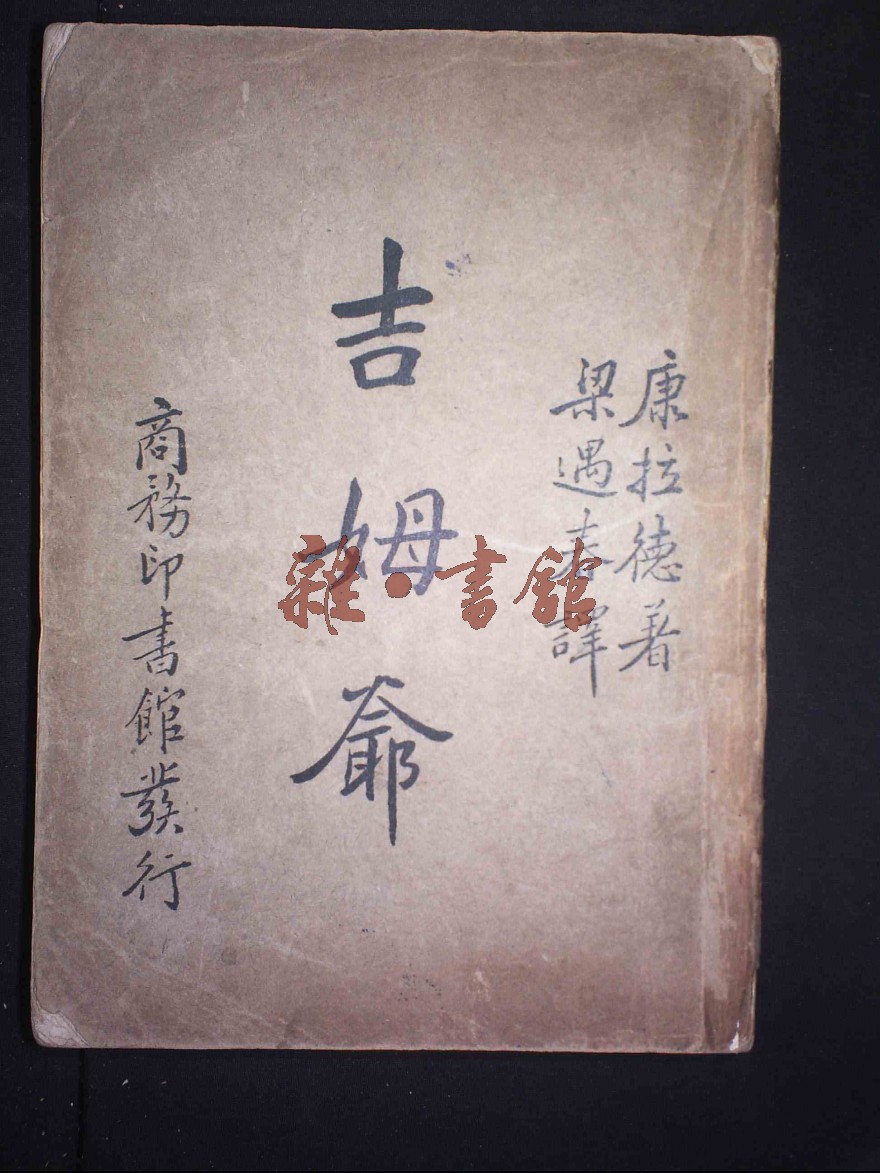 康拉德著
梁遇春譯
吉姆爺
商務印書館發行
雜·書館